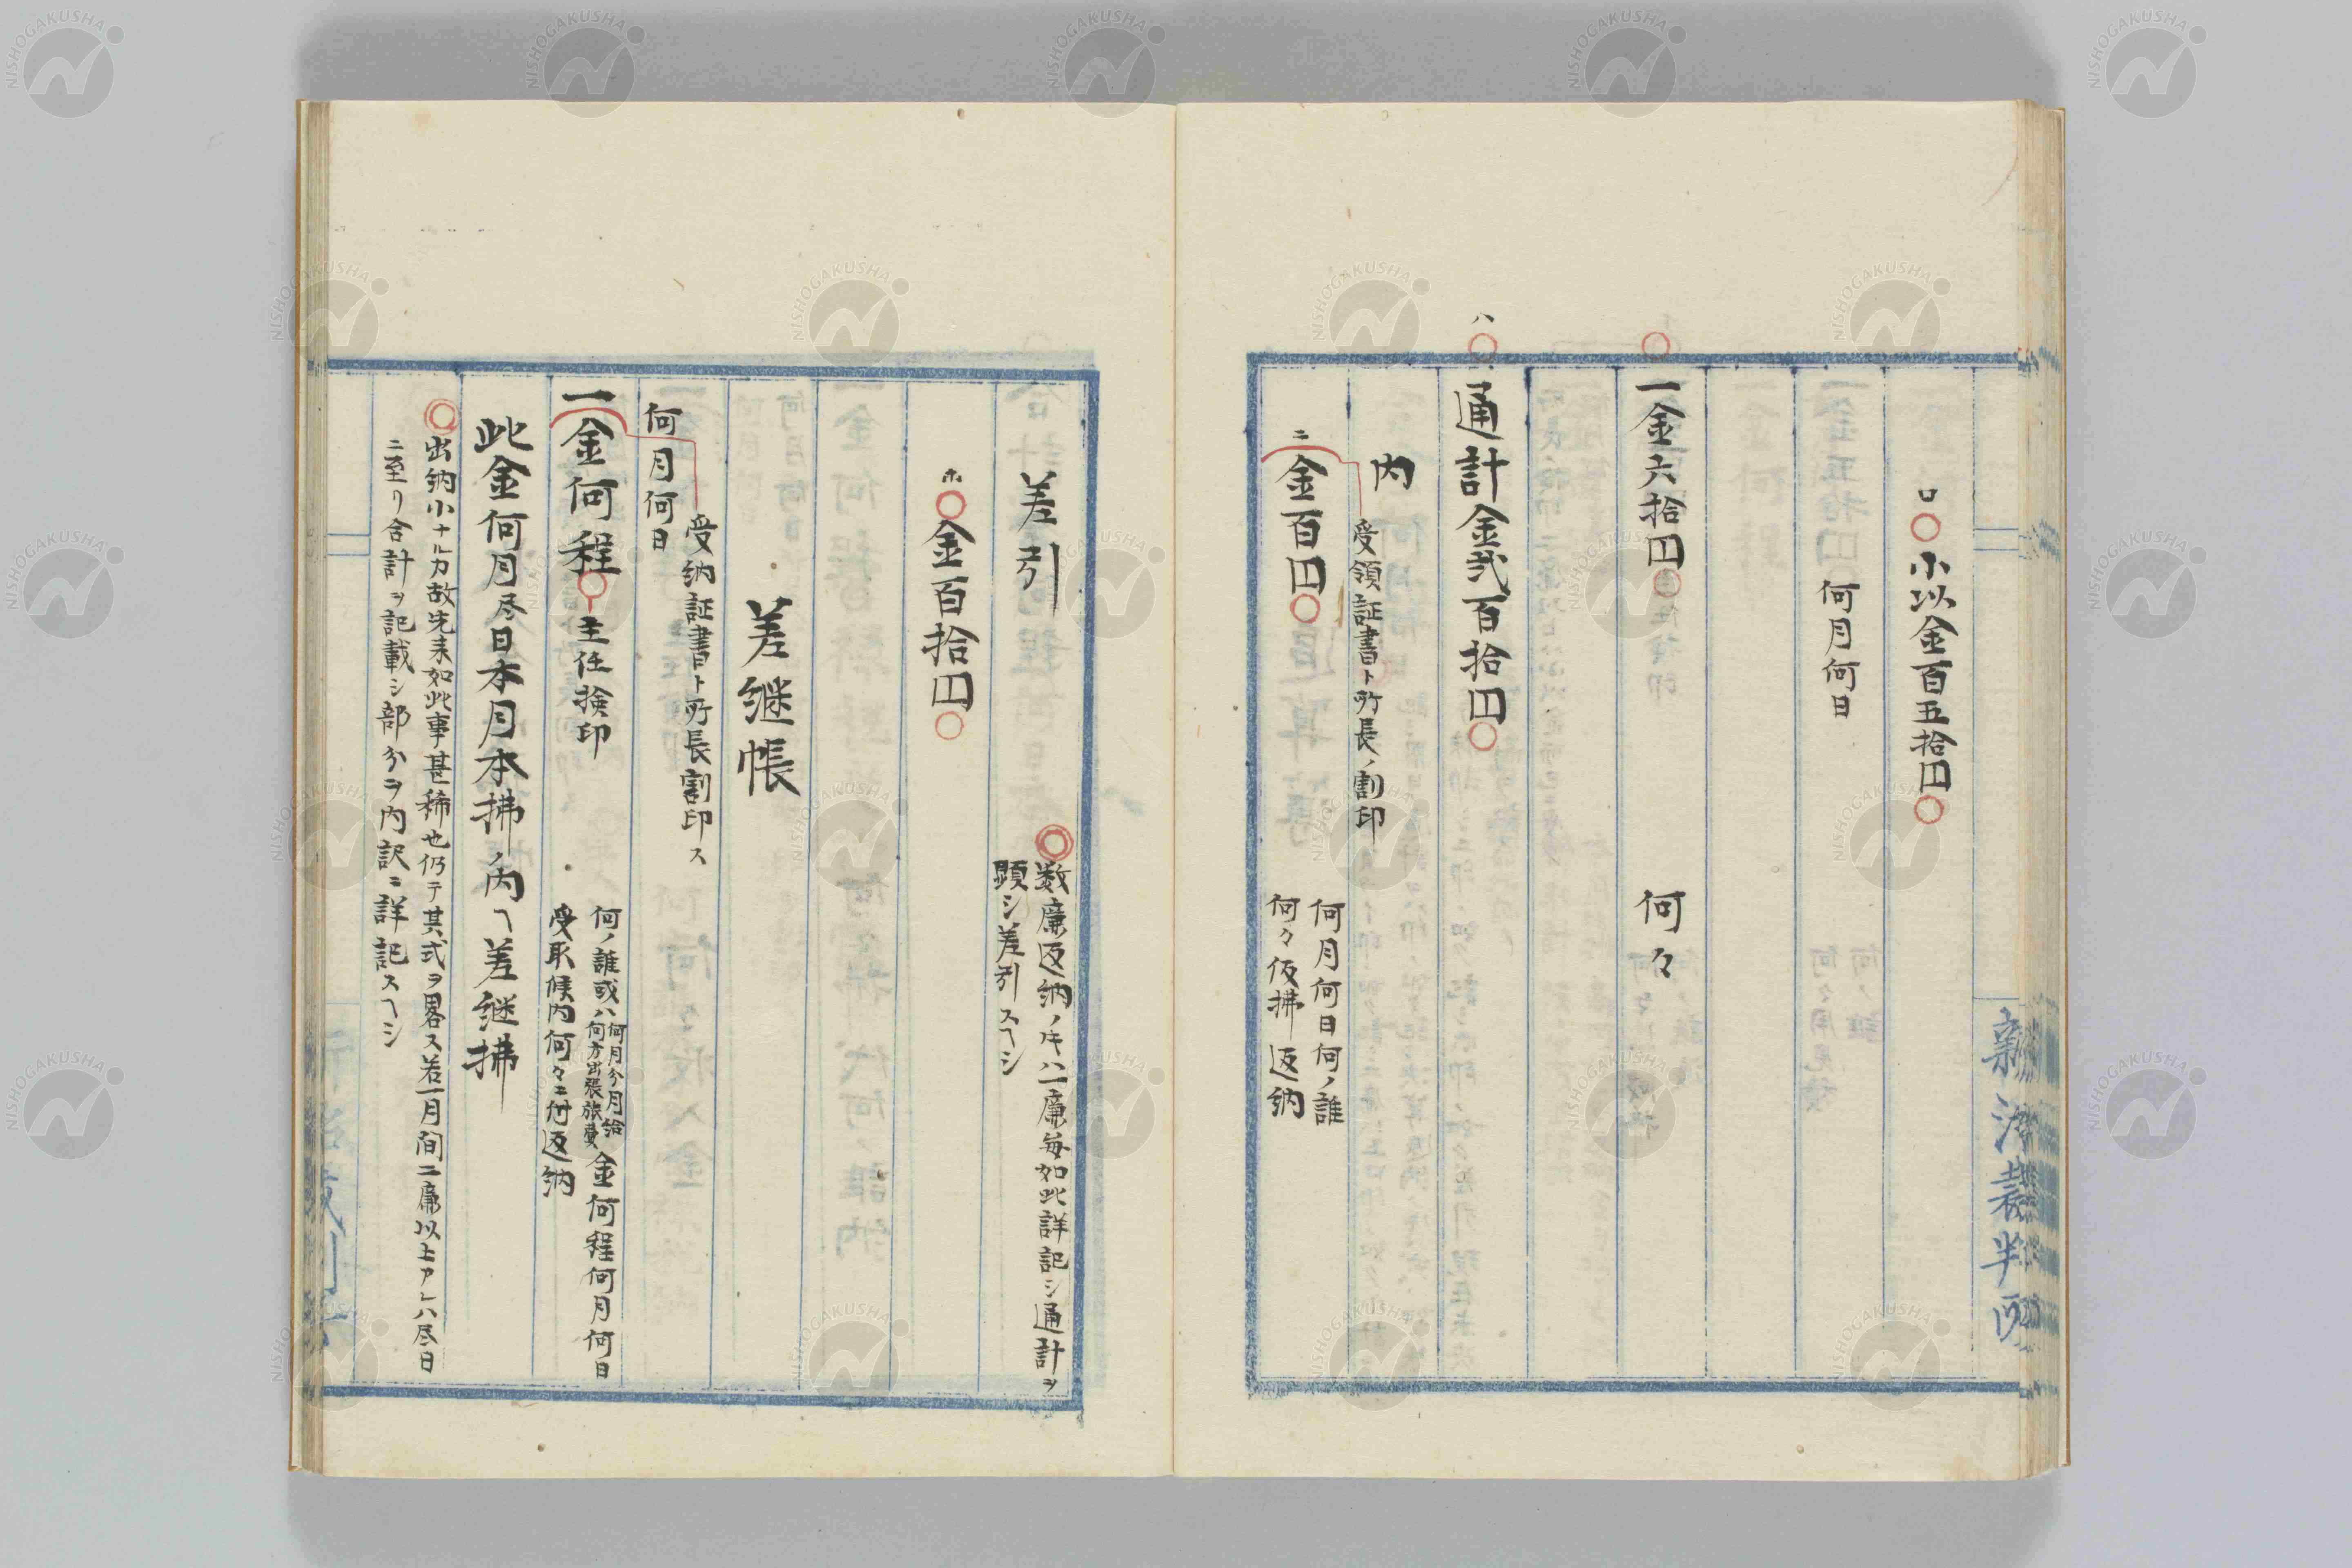 ロ○小以金百五拾円○
何月何日
一金六拾円○ 何々
ハ○
通計金弐百拾円○
内
受領証書ト所長ノ割印
ニ金百円○
何月何日何ノ誰
何々仮払返納
差引
◎数廉返納ノ𪜈ハ一廉毎如此詳記シ通計ヲ
顕シ差引スヘシ
ホ○金百拾円○
差継帳
受納証書ト所長割印ス
何月何日
一金何程○主任検印
何ノ誰或ハ何月分月給何方出張旅費金何程何月何日
受取候内何々ニ付返納
此金何月尽日本月本払ノ内ヘ差継払
◎出納小ナルカ故先来如此事甚稀也仍テ其式ヲ畧ス若一月間ニ二廉以上アルハ尽日
ニ至リ合計ヲ記載シ部分ヲ内訳ニ詳記スヘシ
NISHOGAKUSHA